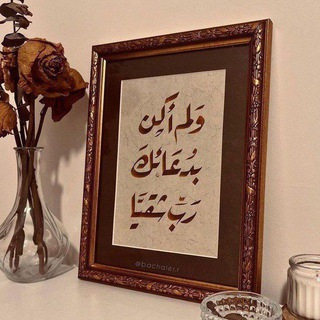 وَلم أكن
بدُعَائكَ
رَبِّ شقيًّا
@bachaier.r